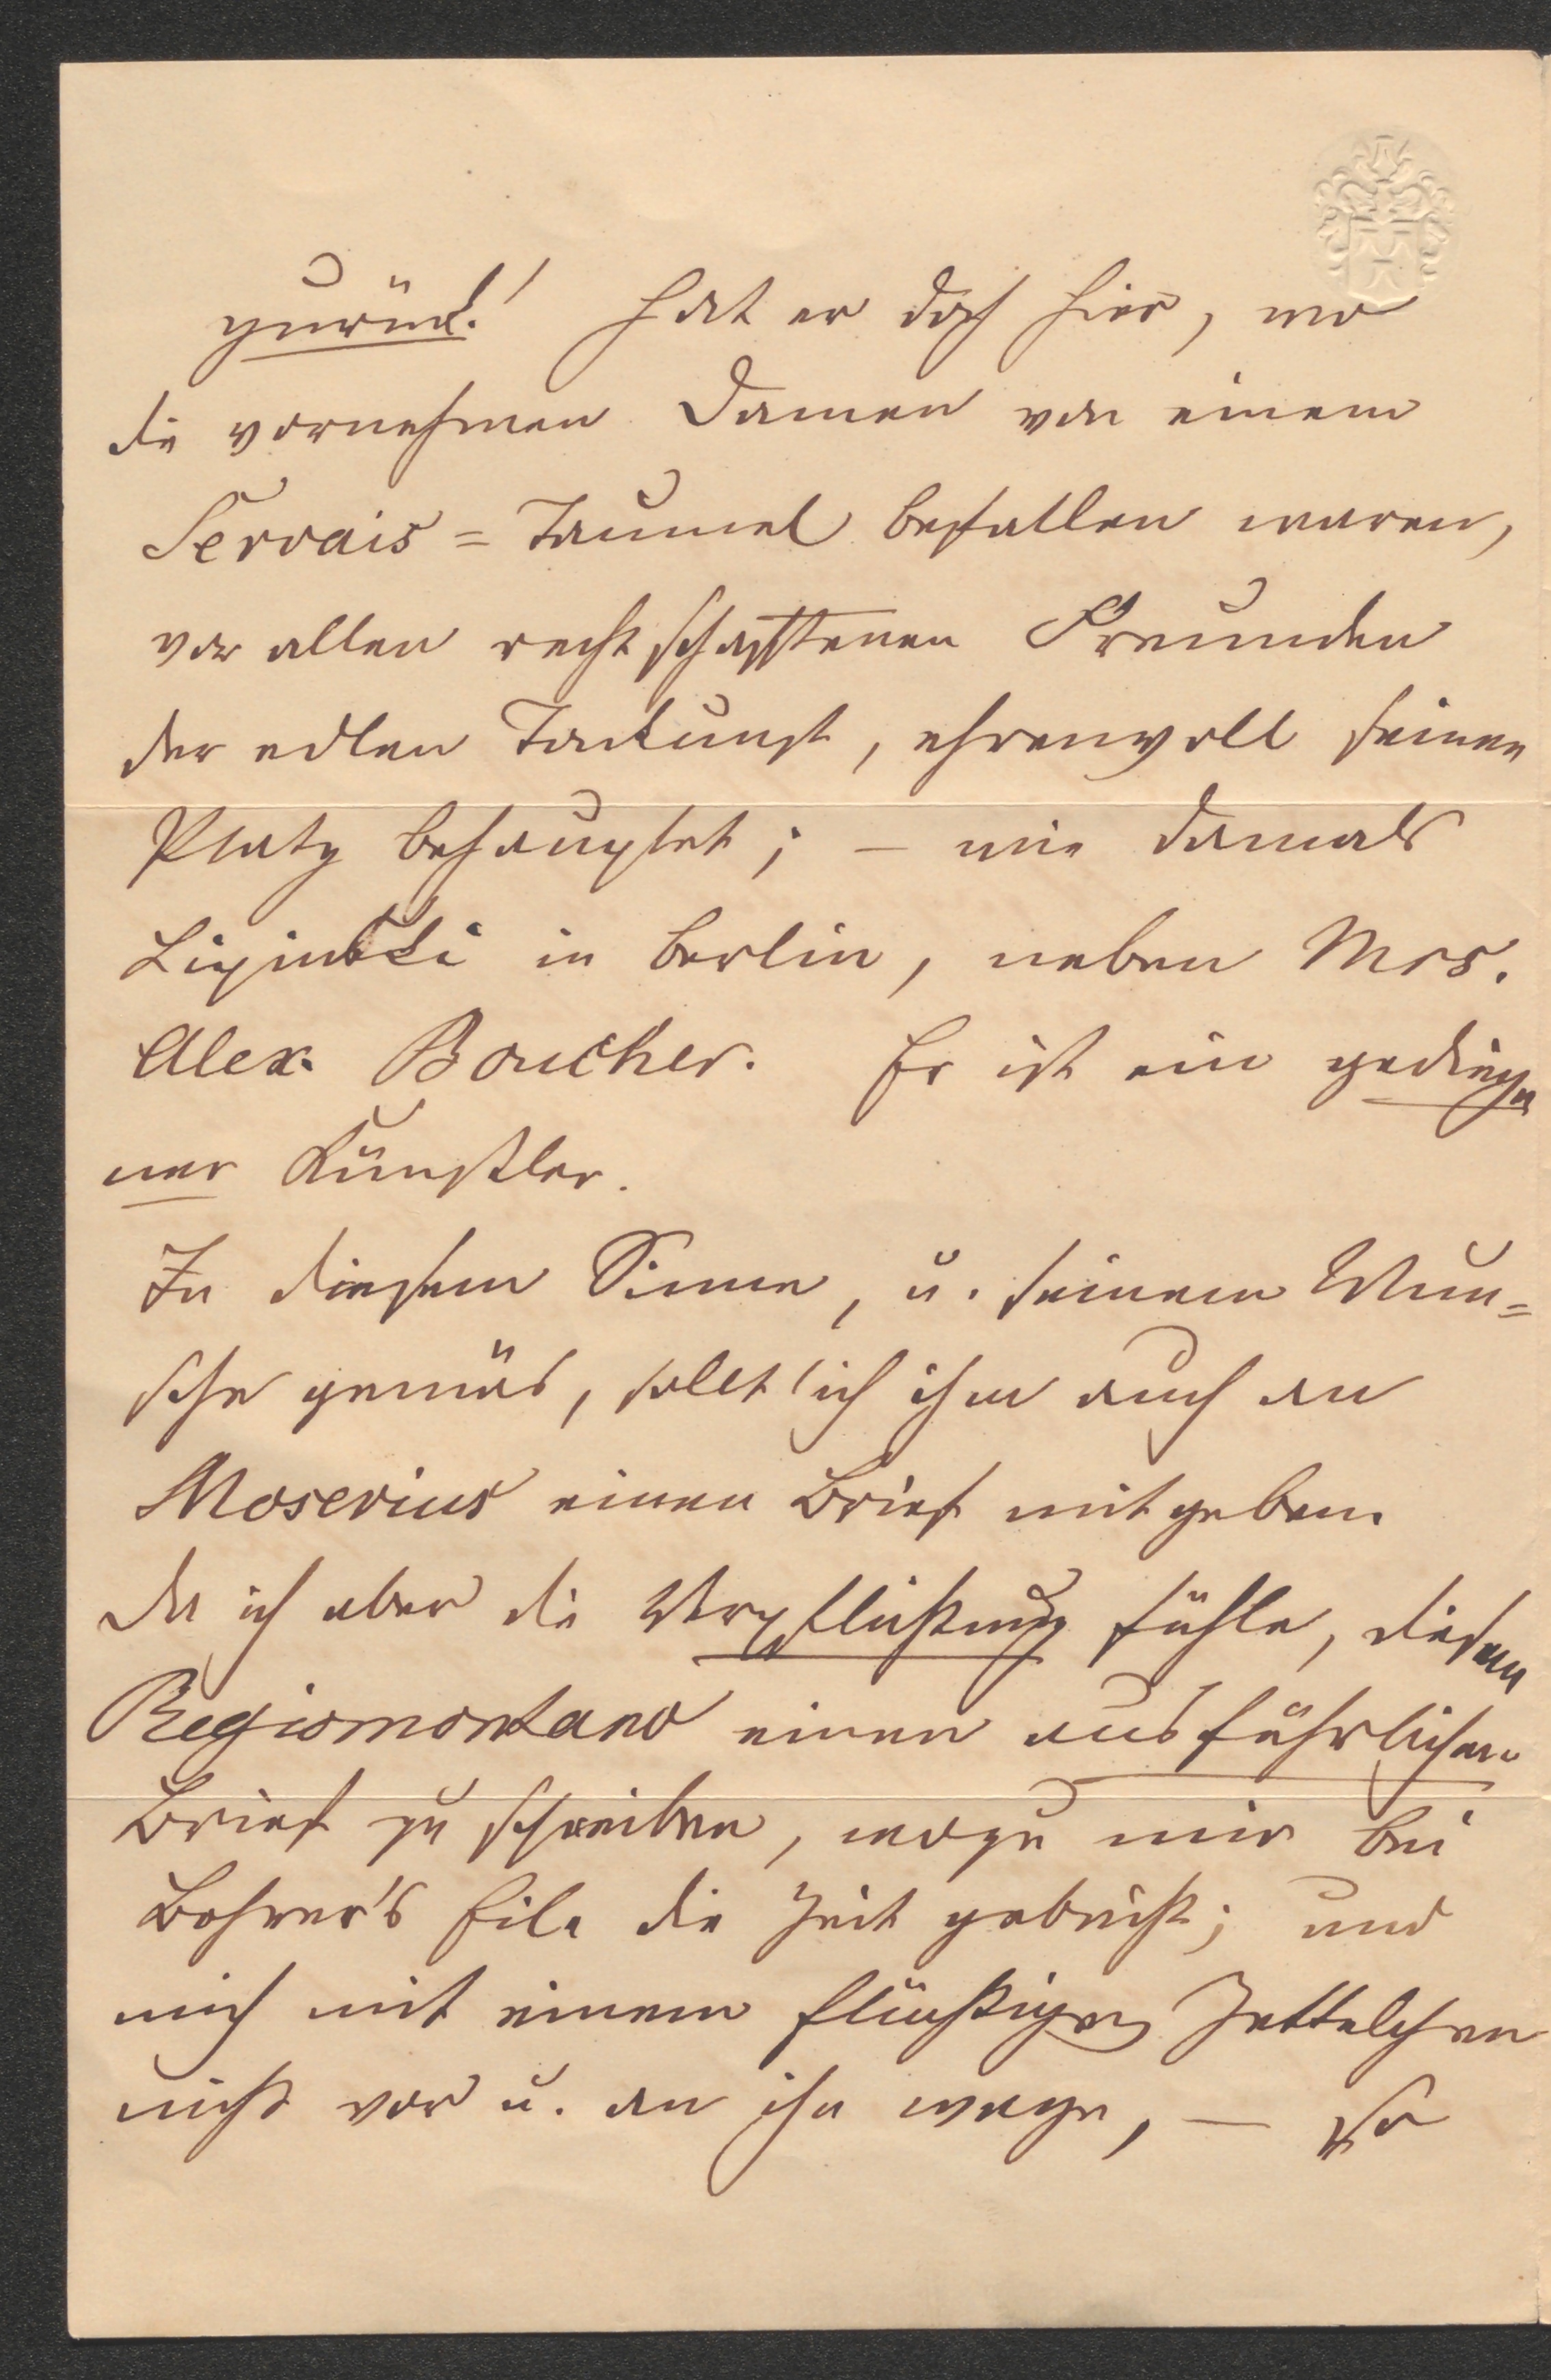 zurück! Hat er doch hier, wo
die vornehmen Damen von einem
Servais=Taumel befallen waren,
vor allen rechtschaffenen Freunden
der edlen Tonkunst, ehrenvoll seinen
Platz behauptet; – wie damals
Lipinski in Berlin, neben Mrs.
Alex. Boucher. Er ist ein gediege
ner Künstler.
In diesem Sinne, u. seinem Wun=
sche gemäs, sollt' ich ihm auch an
Mosevius einen Brief mitgeben.
Da ich aber die Verpflichtung fühle, diesem
Regiomontano einen ausführlichen
Brief zu schreiben, wozu mir bei
Bohrer's Eile die Zeit gebricht; und
mich mit einem flüchtigen Zettelchen
nicht vor u. an ihn wage, – so